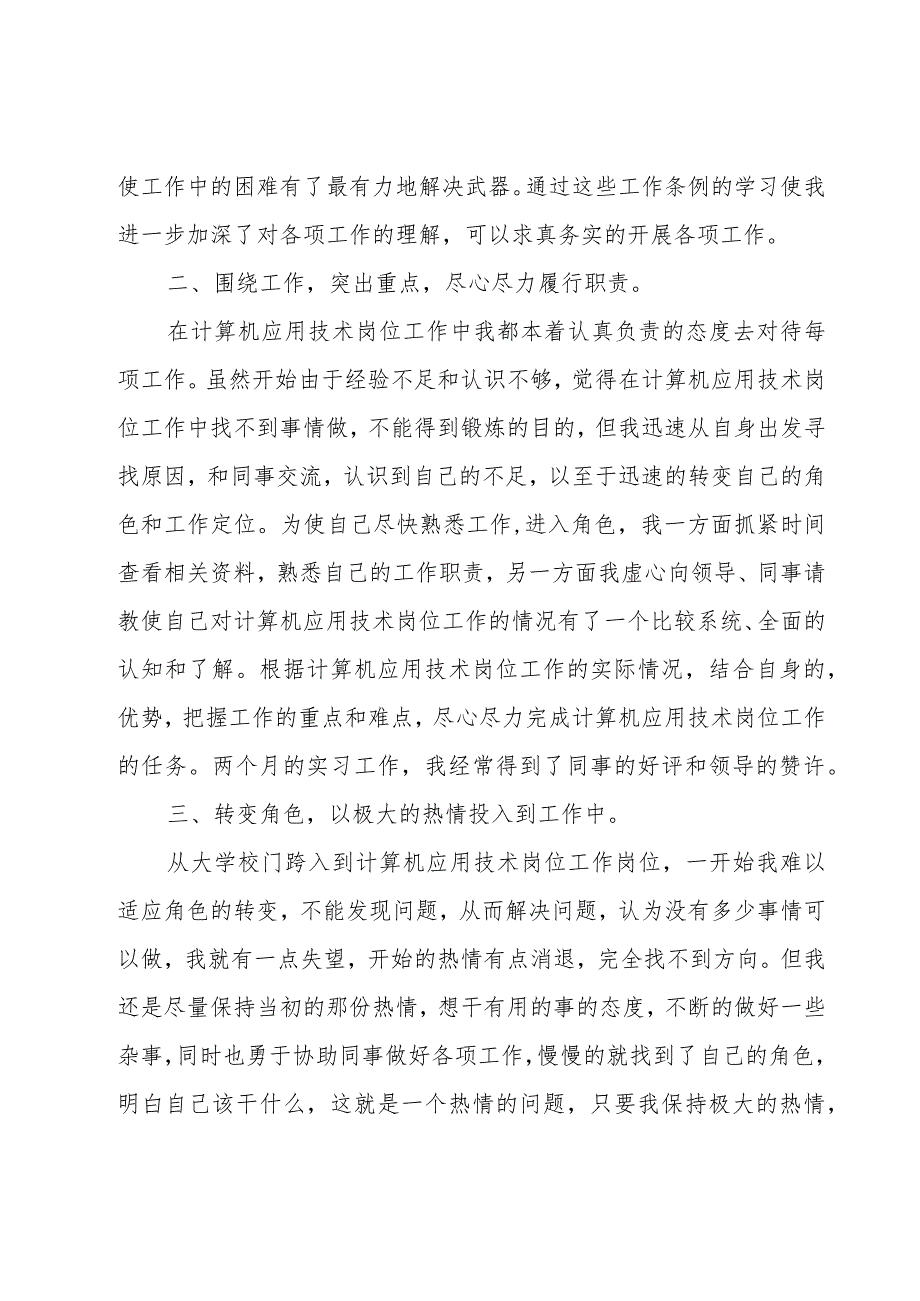 使工作中的困难有了最有力地解决武器。通过这些工作条例的学习使我
进一步加深了对各项工作的理解，可以求真务实的开展各项工作。
二、围绕工作，突出重点，尽心尽力履行职责。
在计算机应用技术岗位工作中我都本着认真负责的态度去对待每
项工作。虽然开始由于经验不足和认识不够，觉得在计算机应用技术岗
位工作中找不到事情做，不能得到锻炼的目的，但我迅速从自身出发寻
找原因，和同事交流，认识到自己的不足，以至于迅速的转变自己的角
色和工作定位。为使自己尽快熟悉工作,进入角色，我一方面抓紧时间
查看相关资料，熟悉自己的工作职责，另一方面我虚心向领导、同事请
教使自己对计算机应用技术岗位工作的情况有了一个比较系统、全面的
认知和了解。根据计算机应用技术岗位工作的实际情况，结合自身的，
优势，把握工作的重点和难点，尽心尽力完成计算机应用技术岗位工作
的任务。两个月的实习工作，我经常得到了同事的好评和领导的赞许。
三、转变角色，以极大的热情投入到工作中。
从大学校门跨入到计算机应用技术岗位工作岗位，一开始我难以
适应角色的转变，不能发现问题，从而解决问题，认为没有多少事情可
以做，我就有一点失望，开始的热情有点消退，完全找不到方向。但我
还是尽量保持当初的那份热情，想干有用的事的态度，不断的做好一些
杂事，同时也勇于协助同事做好各项工作，慢慢的就找到了自己的角色，
明白自己该干什么，这就是一个热情的问题，只要我保持极大的热情，